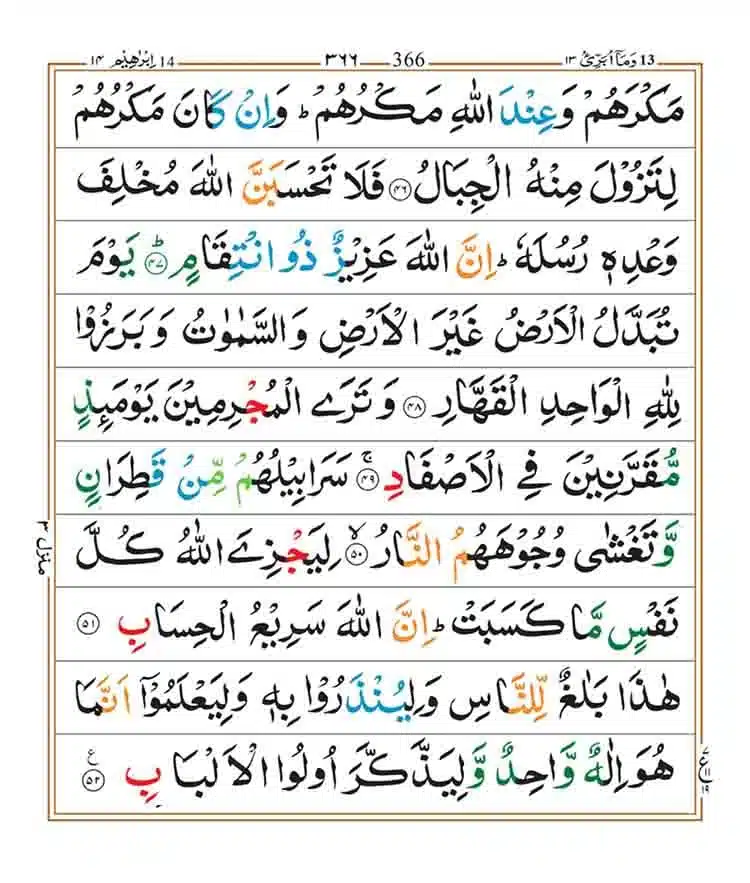 13 وَمَآ اُبَرِّئُ ۱۳ 366 ۳۶۶ 14 اِبْرٰهِيْم ۱۴
مَكْرَهُمْ وَعِنْدَ اللّٰهِ مَكْرُهُمْ ؕ وَاِنْ كَانَ مَكْرُهُمْ
لِتَزُوْلَ مِنْهُ الْجِبَالُ ۴۶ فَلَا تَحْسَبَنَّ اللّٰهَ مُخْلِفَ
وَعْدِهٖ رُسُلَهٗ ؕ اِنَّ اللّٰهَ عَزِيْزٌ ذُو انْتِقَامٍ ؕ ۴۷ يَوْمَ
تُبَدَّلُ الْاَرْضُ غَيْرَ الْاَرْضِ وَالسَّمٰوٰتُ وَبَرَزُوْا
لِلّٰهِ الْوَاحِدِ الْقَهَّارِ ۴۸ وَتَرَى الْمُجْرِمِيْنَ يَوْمَئِذٍ
مُّقَرَّنِيْنَ فِى الْاَصْفَادِ ۚ ۴۹ سَرَابِيْلُهُمْ مِّنْ قَطِرَانٍ
وَّتَغْشٰى وُجُوْهَهُمُ النَّارُ ۙ ۵۰ لِيَجْزِىَ اللّٰهُ كُلَّ
نَفْسٍ مَّا كَسَبَتْ ؕ اِنَّ اللّٰهَ سَرِيْعُ الْحِسَابِ ۵۱
هٰذَا بَلٰغٌ لِّلنَّاسِ وَلِيُنْذَرُوْا بِهٖ وَلِيَعْلَمُوْۤا اَنَّمَا
هُوَ اِلٰهٌ وَّاحِدٌ وَّلِيَذَّكَّرَ اُولُوا الْاَلْبَابِ ۵۲ ع
منزل ۳
۷ ع ۱۱ ۱۹